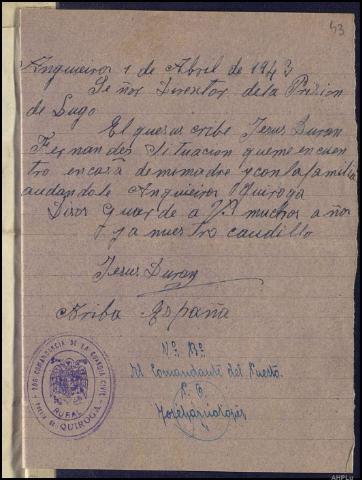 43
Anguieiros 1 de Abril de 1943
Señor Directror dela Prision
de Lugo
El quesus cribe Jesus Duran
Fernandes Situacion queme encuen
tro encasa demimadre yconlafamilia
audandole Anguieiros Quiroga
Dios guarde a V.I muchos años
yanuestro caudillo
Jesus Duran
Ariba España
Vº Bº
El Comandante del Puesto
COMANDANCIA DE LA GUARDIA CIVIL
RURAL
QUIROGA
AHPLu